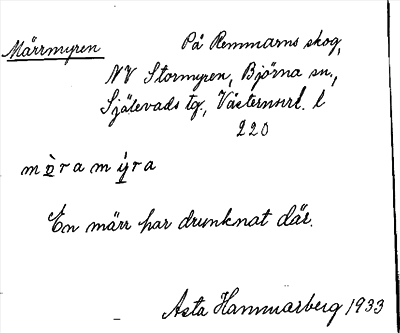 Märrmyren
På Remmarns skog,
NV Stormyren, Björna sn.,
Själevads tg., Västernorrl. l
220
En märr har drunknat där.
Asta Hammarberg 1933